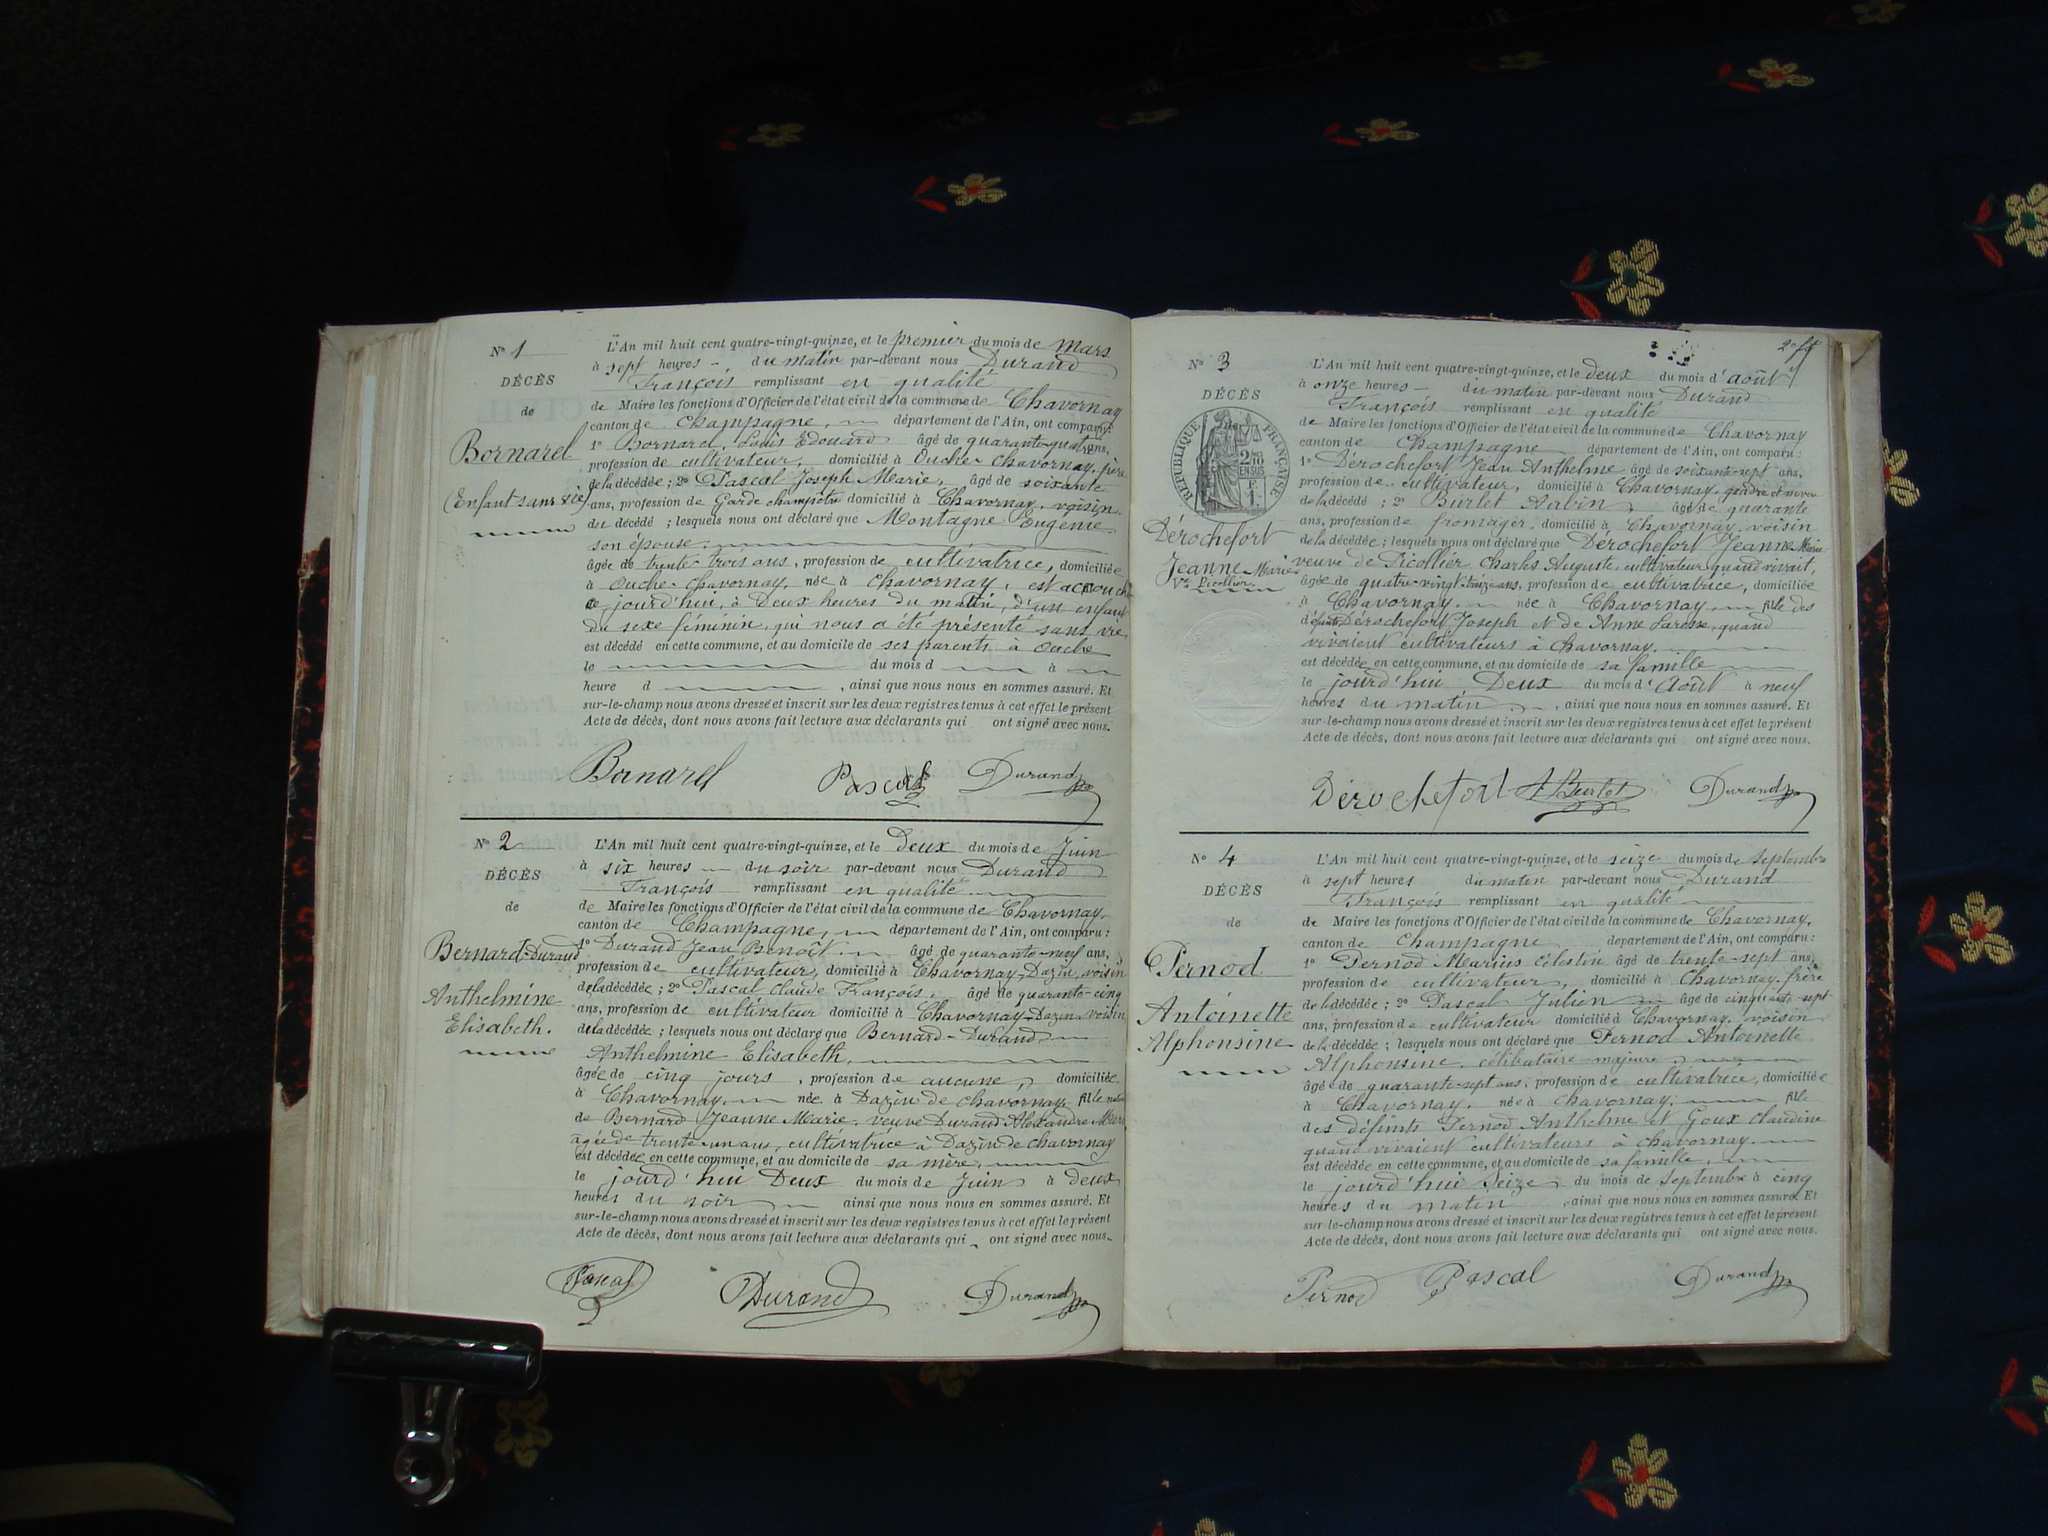 N° 1
DÉCÈS
de
Bornarel
(Enfant sans vie)
L'An mil huit cent quatre-vingt-quinze, et le premier du mois de mars
à sept heures du matin par-devant nous Durand
François remplissant en qualité
de Maire les fonctions d'Officier de l'état civil de la commune de Chavornay
canton de Champagne, département de l'Ain, ont comparu:
1° Bornarel, Louis Edouard âgé de quarante-quatre ans,
profession de cultivateur, domicilié à Ouche-Chavornay, père
de la décédée; 2° Pascal Joseph Marie, âgé de soixante
ans, profession de Garde champêtre domicilié à Chavornay, voisin
du décédé; lesquels nous ont déclaré que Montagne Eugénie
son épouse.
âgée de trente-trois ans, profession de cultivatrice, domiciliée
à Ouche-Chavornay, née à Chavornay, est accouchée
ce jourd'hui, à Deux heures du matin, d'un enfant
du sexe féminin, qui nous a été présenté sans vie,
est décédé en cette commune, et au domicile de ses parents à Ouche
le du mois d à
heure d , ainsi que nous nous en sommes assuré. Et
sur-le-champ nous avons dressé et inscrit sur les deux registres tenus à cet effet le présent
Acte de décès, dont nous avons fait lecture aux déclarants qui ont signé avec nous.
Bornarel Pascal Durand
N° 2
DÉCÈS
de
Bernard-Durand
Anthelmine
Elisabeth.
L'An mil huit cent quatre-vingt-quinze, et le deux du mois de Juin
à six heures du soir par-devant nous Durand
François remplissant en qualité
de Maire les fonctions d'Officier de l'état civil de la commune de Chavornay,
canton de Champagne, département de l'Ain, ont comparu:
1° Durand Jean Benoît âgé de quarante-neuf ans,
profession de cultivateur, domicilié à Chavornay-Dazin, voisin
de la décédée; 2° Pascal Claude François, âgé de quarante-cinq
ans, profession de cultivateur domicilié à Chavornay-Dazin, voisin
de la décédée; lesquels nous ont déclaré que Bernard-Durand
Anthelmine Elisabeth,
âgée de cinq jours, profession de aucune, domiciliée
à Chavornay, née à Dazin de Chavornay, fille
de Bernard Jeanne Marie, veuve Durand Alexandre
âgée de trente-un ans, cultivatrice à Dazin de Chavornay
est décédée en cette commune, et au domicile de sa mère,
le jourd'hui Deux du mois de Juin à deux
heures du soir ainsi que nous nous en sommes assuré. Et
sur-le-champ nous avons dressé et inscrit sur les deux registres tenus à cet effet le présent
Acte de décès, dont nous avons fait lecture aux déclarants qui ont signé avec nous.
Pascal Durand Durand
N° 3
DÉCÈS
RÉPUBLIQUE FRANÇAISE
Dérochefort
Jeanne-Marie
Vve Picollier
L'An mil huit cent quatre-vingt-quinze, et le deux du mois d'août
à onze heures du matin par-devant nous Durand
François remplissant en qualité
de Maire les fonctions d'Officier de l'état civil de la commune de Chavornay
canton de Champagne département de l'Ain, ont comparu:
1° Dérochefort Jean Anthelme âgé de soixante-sept ans,
profession de cultivateur, domicilié à Chavornay,
de la décédé; 2° Burlet Aabin âgé de quarante
ans, profession de fromager, domicilié à Chavornay, voisin
de la décédée; lesquels nous ont déclaré que Dérochefort Jeanne Marie
veuve de Picollier Charles Auguste, cultivateur quand vivait,
âgée de quatre-vingt ans, profession de cultivatrice, domiciliée
à Chavornay, née à Chavornay, fille des
défunts Dérochefort Joseph et de Anne quand
vivaient cultivateurs à Chavornay.
est décédée en cette commune, et au domicile de sa famille
le jourd'hui Deux du mois d'Août à neuf
heures du matin, ainsi que nous nous en sommes assuré. Et
sur-le-champ nous avons dressé et inscrit sur les deux registres tenus à cet effet le présent
Acte de décès, dont nous avons fait lecture aux déclarants qui ont signé avec nous.
Dérochefort A Burlet Durand
N° 4
DÉCÈS
de
Pernod
Antoinette
Alphonsine
L'An mil huit cent quatre-vingt-quinze, et le seize du mois de Septembre
à sept heures du matin par-devant nous Durand
François remplissant en qualité
de Maire les fonctions d'Officier de l'état civil de la commune de Chavornay,
canton de Champagne département de l'Ain, ont comparu:
1° Pernod Marius Célestin âgé de trente-sept ans,
profession de cultivateur, domicilié à Chavornay, frère
de la décédée; 2° Pascal Julien âgé de cinquante-sept
ans, profession de cultivateur domicilié à Chavornay, voisin
de la décédée; lesquels nous ont déclaré que Pernod Antoinette
Alphonsine, célibataire majeure,
âgée de quarante-sept ans, profession de cultivatrice, domiciliée
à Chavornay, née à Chavornay, fille
des défunts Pernod Anthelme et Goux Claudine
quand vivaient cultivateurs à Chavornay.
est décédée en cette commune, et au domicile de sa famille,
le jourd'hui Seize du mois de Septembre à cinq
heures du matin, ainsi que nous nous en sommes assuré. Et
sur-le-champ nous avons dressé et inscrit sur les deux registres tenus à cet effet le présent
Acte de décès, dont nous avons fait lecture aux déclarants qui ont signé avec nous.
Pernod Pascal Durand